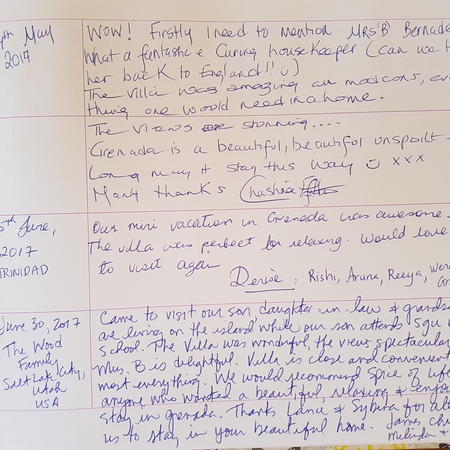 May
2017
WOW! Firstly I need to mention Mrs 'B' Bernade
What a fantastic & Caring housekeeper (can we t
her back to England!! :)
The villa was amazing all mod cons, ev
thing one would need in a home.
The views are stunning....
Grenada is a beautiful, beautiful unspoilt
Long may it stay this way xxx
Many thanks
June,
2017
TRINIDAD
Our mini vacation in Grenada was awesome.
The villa was perfect for relaxing. Would love
to visit again
Denise, Rishi, Aruna, Reeya,
June 30, 2017
The Wood
Family
Salt Lake City,
Utah
USA
Came to visit our son, daughter-in-law & grands
are living on the island while our son attends SGU
school. The Villa was wonderful, the views spectacular
Mrs. B is delightful. Villa is close and convenient
most everything. We would recommend Spice of Life
anyone who wanted a beautiful relaxing & enjoy
stay in grenada. Thanks Lance & Sybita for all
us to stay in your beautiful home. James, Ch
Melinda +